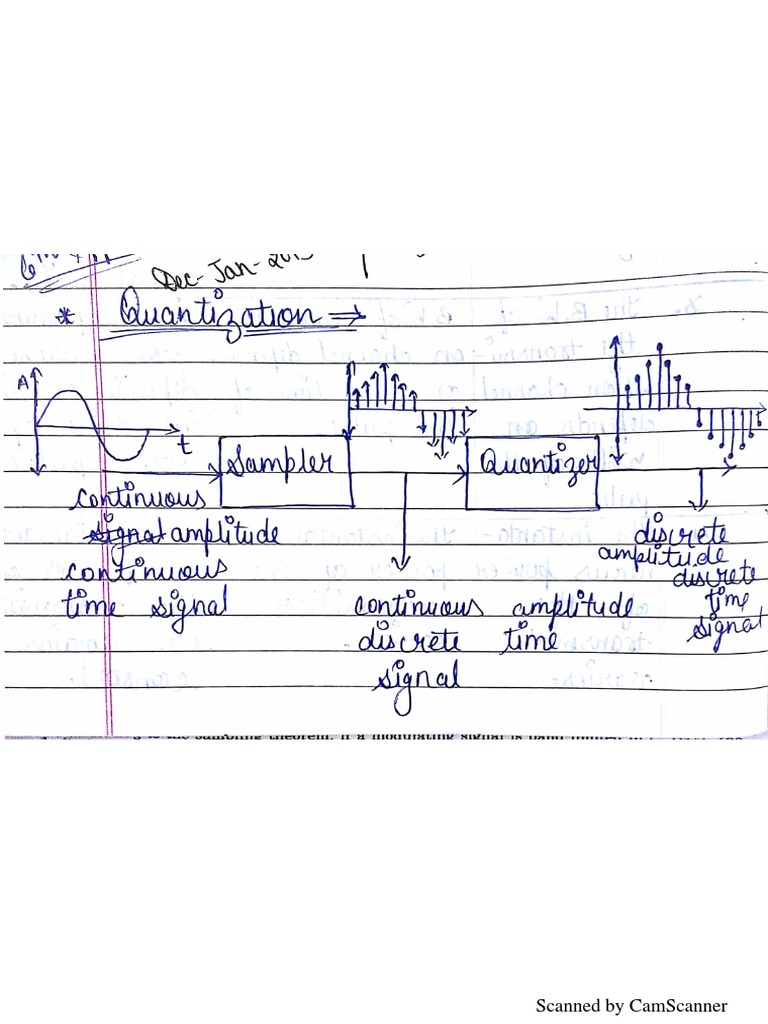 Dec-Jan-
* Quantization ⇒
A
t
Sampler
Quantizer
continuous
signal amplitude
continuous
time signal
continuous amplitude
discrete time
signal
discrete
amplitude
discrete
time
signal
Scanned by CamScanner